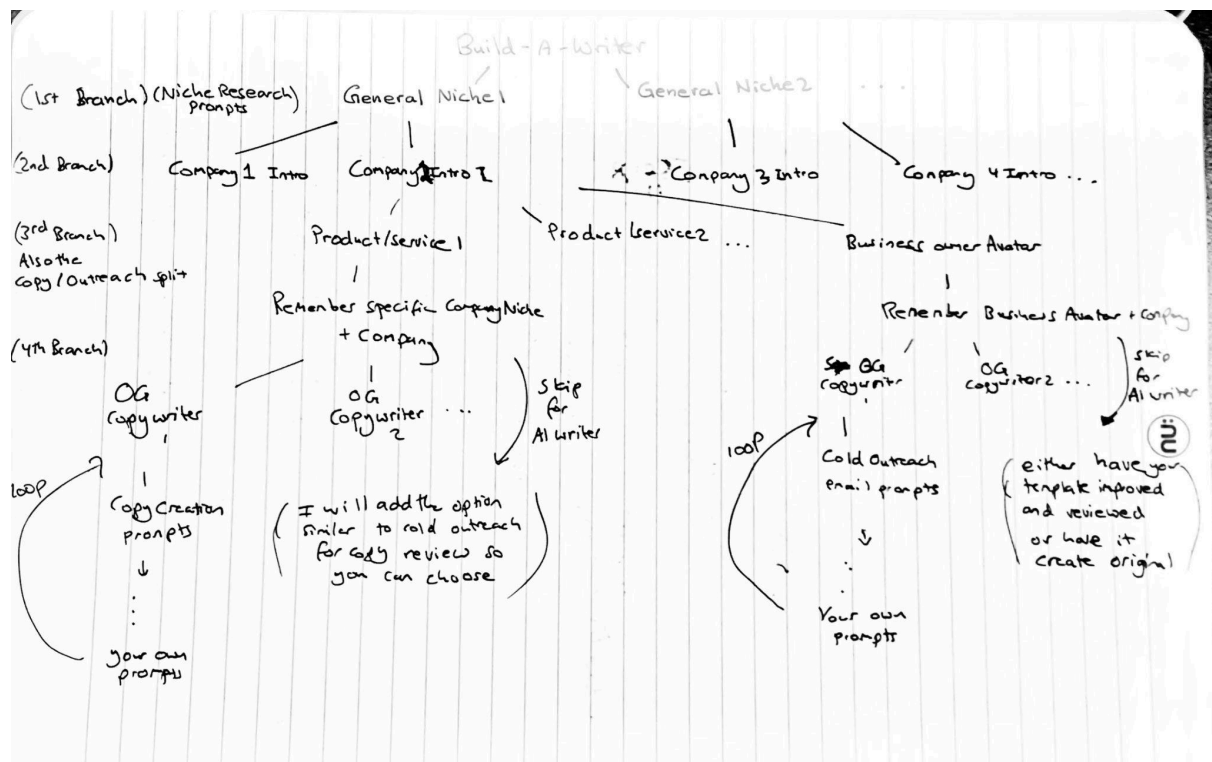 Build-A-Writer
(1st Branch) (Niche Research) General Niche1 General Niche2 ...
prompts
(2nd Branch) Company 1 Intro Company Intro Company 3 Intro Company 4 Intro ...
(3rd Branch) Product/service 1 Product/service2 ... Business owner Avatar
Also the
Copy/Outreach split
Remember specific Company Niche Remember Business Avatar + Company
+ Company
(4th Branch)
OG
Copywriter
1
OG
Copywriter
2
...
Skip
for
AI writer
OG
Copywriter
1
OG
Copywriter2 ...
Skip
for
AI writer
loop
Copy Creation
prompts
your own
prompts
(I will add the option
similar to cold outreach
for copy review so
you can choose)
loop
Cold Outreach
email prompts
Your own
prompts
(either have your
template improved
and reviewed
or have it
create original)